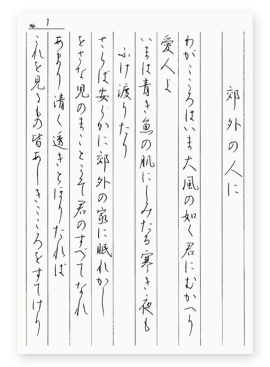 郊外の人に
わがこころはいま大風の如く君にむかへり
愛人よ
いまは青き魚の肌にしみたる寒き夜も
ふけ渡りたり
さらば安らかに郊外の家に眠れかし
をさな児のまことこそ君のすべてなれ
あまり清く透きとほりたれば
これを見るもの皆あしきこころをすてけり
1